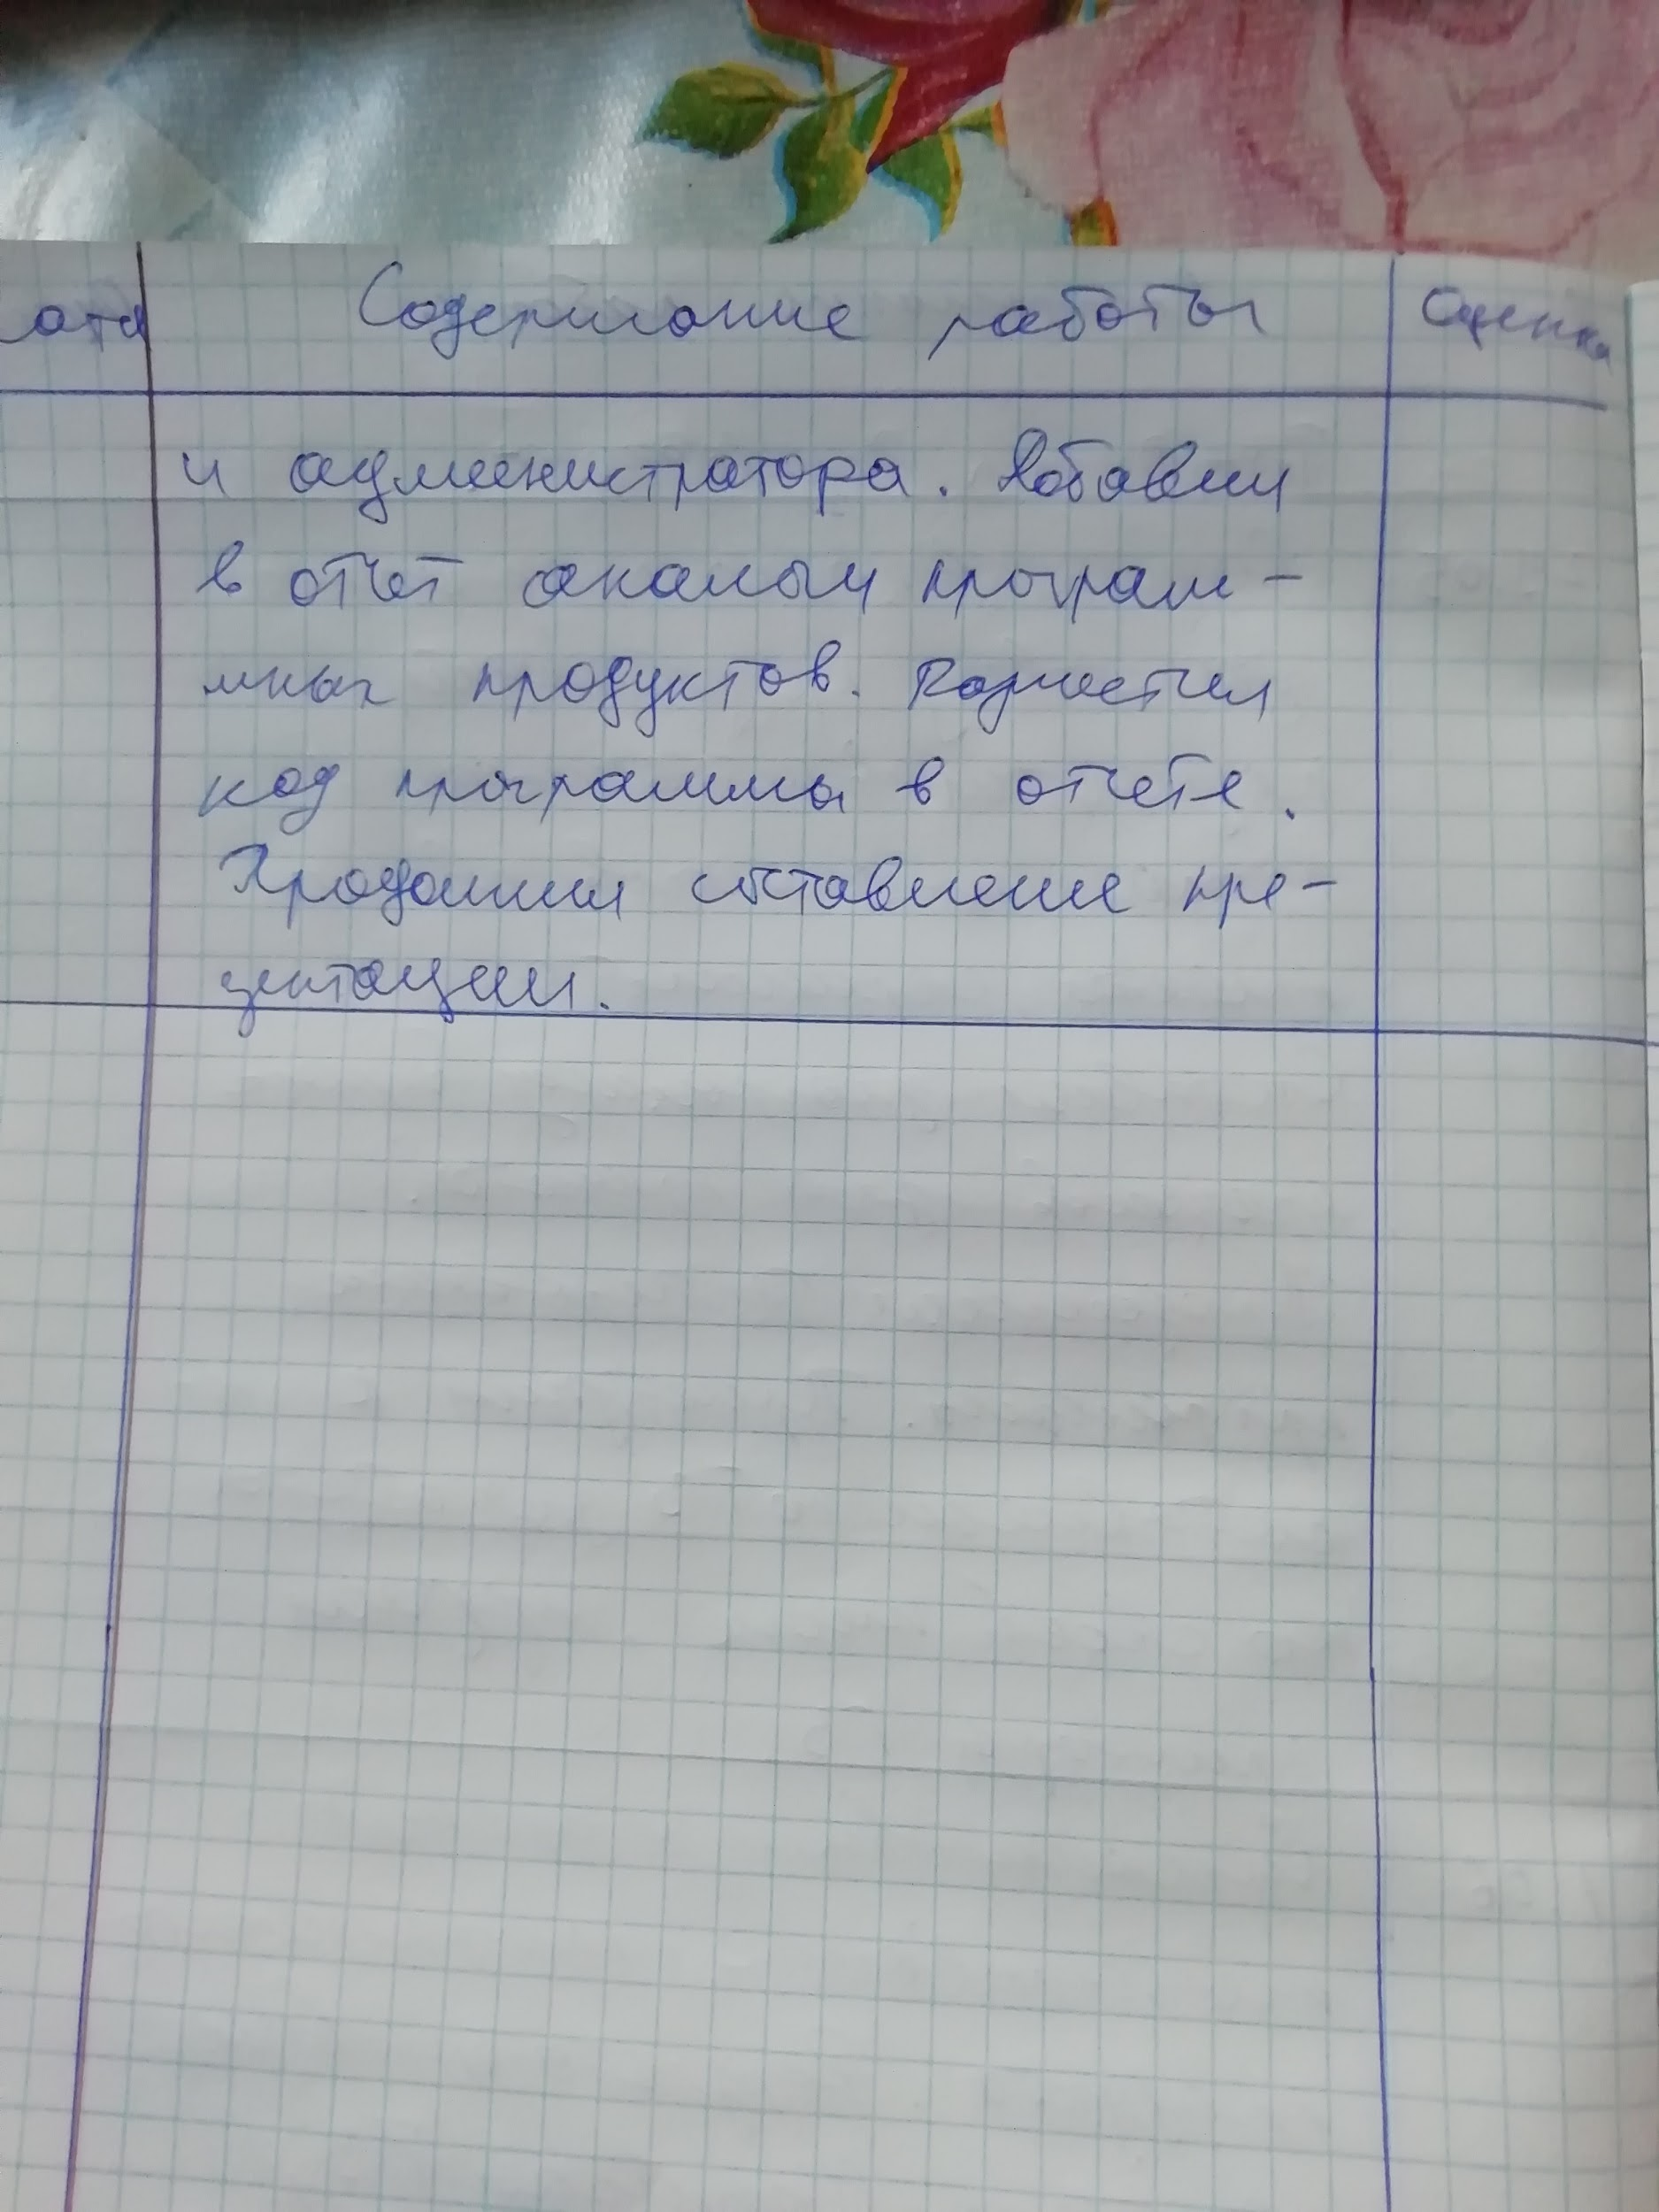 Дата Содержание работы Оценка
и администратора. Добавил
в отчет аналоги програм-
мных продуктов. Разместил
код программы в отчете.
Продолжил составление пре-
зентации.